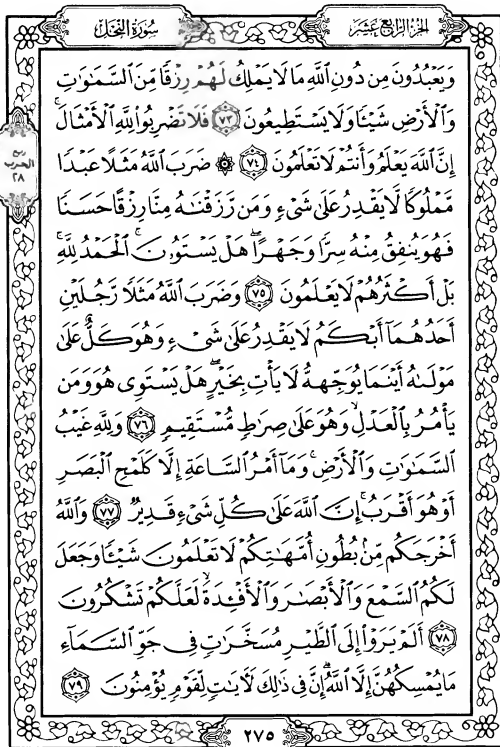 الجزء الرابع عشر
سورة النحل
وَيَعْبُدُونَ مِن دُونِ ٱللَّهِ مَا لَا يَمْلِكُ لَهُمْ رِزْقًا مِّنَ ٱلسَّمَٰوَٰتِ
وَٱلْأَرْضِ شَيْـًٔا وَلَا يَسْتَطِيعُونَ ٧٣ فَلَا تَضْرِبُوا۟ لِلَّهِ ٱلْأَمْثَالَ ۚ
ربع
الحزب
٢٨
إِنَّ ٱللَّهَ يَعْلَمُ وَأَنتُمْ لَا تَعْلَمُونَ ٧٤ ۞ ضَرَبَ ٱللَّهُ مَثَلًا عَبْدًا
مَّمْلُوكًا لَّا يَقْدِرُ عَلَىٰ شَىْءٍ وَمَن رَّزَقْنَٰهُ مِنَّا رِزْقًا حَسَنًا
فَهُوَ يُنفِقُ مِنْهُ سِرًّا وَجَهْرًا ۖ هَلْ يَسْتَوُۥنَ ۚ ٱلْحَمْدُ لِلَّهِ ۚ
بَلْ أَكْثَرُهُمْ لَا يَعْلَمُونَ ٧٥ وَضَرَبَ ٱللَّهُ مَثَلًا رَّجُلَيْنِ
أَحَدُهُمَآ أَبْكَمُ لَا يَقْدِرُ عَلَىٰ شَىْءٍ وَهُوَ كَلٌّ عَلَىٰ
مَوْلَىٰهُ أَيْنَمَا يُوَجِّههُّ لَا يَأْتِ بِخَيْرٍ ۖ هَلْ يَسْتَوِى هُوَ وَمَن
يَأْمُرُ بِٱلْعَدْلِ ۙ وَهُوَ عَلَىٰ صِرَٰطٍ مُّسْتَقِيمٍ ٧٦ وَلِلَّهِ غَيْبُ
ٱلسَّمَٰوَٰتِ وَٱلْأَرْضِ ۚ وَمَآ أَمْرُ ٱلسَّاعَةِ إِلَّا كَلَمْحِ ٱلْبَصَرِ
أَوْ هُوَ أَقْرَبُ ۚ إِنَّ ٱللَّهَ عَلَىٰ كُلِّ شَىْءٍ قَدِيرٌ ٧٧ وَٱللَّهُ
أَخْرَجَكُم مِّنۢ بُطُونِ أُمَّهَٰتِكُمْ لَا تَعْلَمُونَ شَيْـًٔا وَجَعَلَ
لَكُمُ ٱلسَّمْعَ وَٱلْأَبْصَٰرَ وَٱلْأَفْـِٔدَةَ ۙ لَعَلَّكُمْ تَشْكُرُونَ
٧٨ أَلَمْ يَرَوْا۟ إِلَى ٱلطَّيْرِ مُسَخَّرَٰتٍ فِى جَوِّ ٱلسَّمَآءِ
مَا يُمْسِكُهُنَّ إِلَّا ٱللَّهُ ۗ إِنَّ فِى ذَٰلِكَ لَءَايَٰتٍ لِّقَوْمٍ يُؤْمِنُونَ ٧٩
٢٧٥